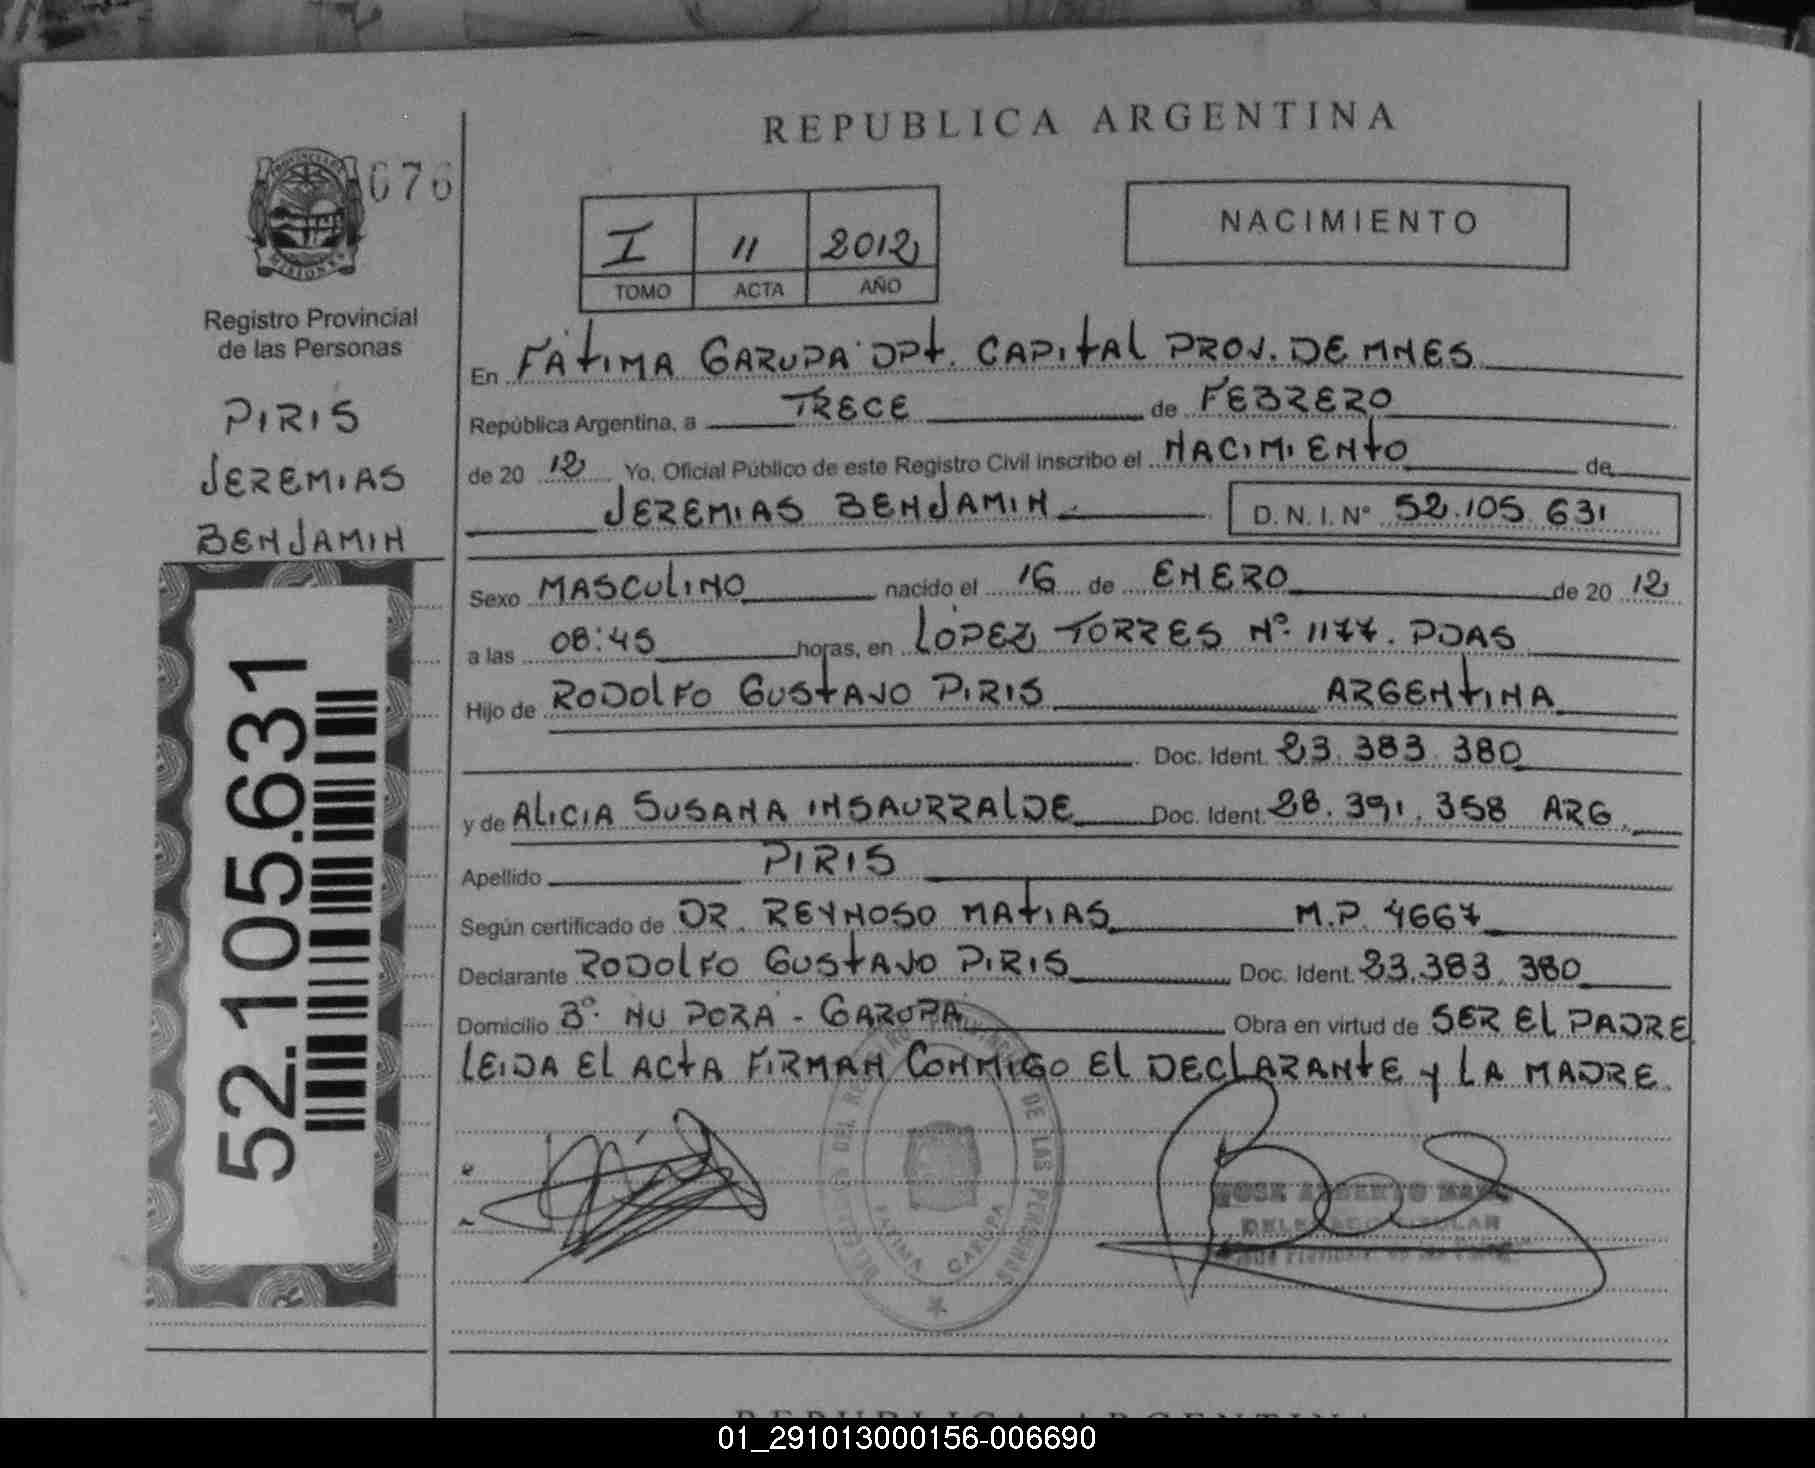 REPUBLICA ARGENTINA
676
MISIONES
NACIMIENTO
I 11 2012
TOMO ACTA AÑO
Registro Provincial
de las Personas
PIRIS
JEREMIAS
BENJAMIN
52.105.631
En FÁTIMA GARUPA' DPT. CAPITAL PROV. DE MNES
República Argentina, a TRECE de FEBRERO
de 20 12 Yo, Oficial Público de este Registro Civil inscribo el NACIMIENTO de
JEREMIAS BENJAMIN D.N.I. N° 52.105.631
Sexo MASCULINO nacido el 16 de ENERO de 20 12
a las 08:45 horas, en LÓPEZ TORRES Nº 1177. PDAS
Hijo de RODOLFO GUSTAVO PIRIS ARGENTINA
Doc. Ident. 23.383.380
y de ALICIA SUSANA INSAURRALDE Doc. Ident. 28.391.358 ARG.
Apellido PIRIS
Según certificado de DR. REYNOSO MATIAS M.P. 4667
Declarante RODOLFO GUSTAVO PIRIS Doc. Ident. 23.383.380
Domicilio Bº ÑU PORÁ - GARUPÁ Obra en virtud de SER EL PADRE
LEIDA EL ACTA FIRMAN CONMIGO EL DECLARANTE Y LA MADRE.
DE LAS PERSONAS
FATIMA GARUPA
REPUBLICA ARGENTINA
01_291013000156-006690